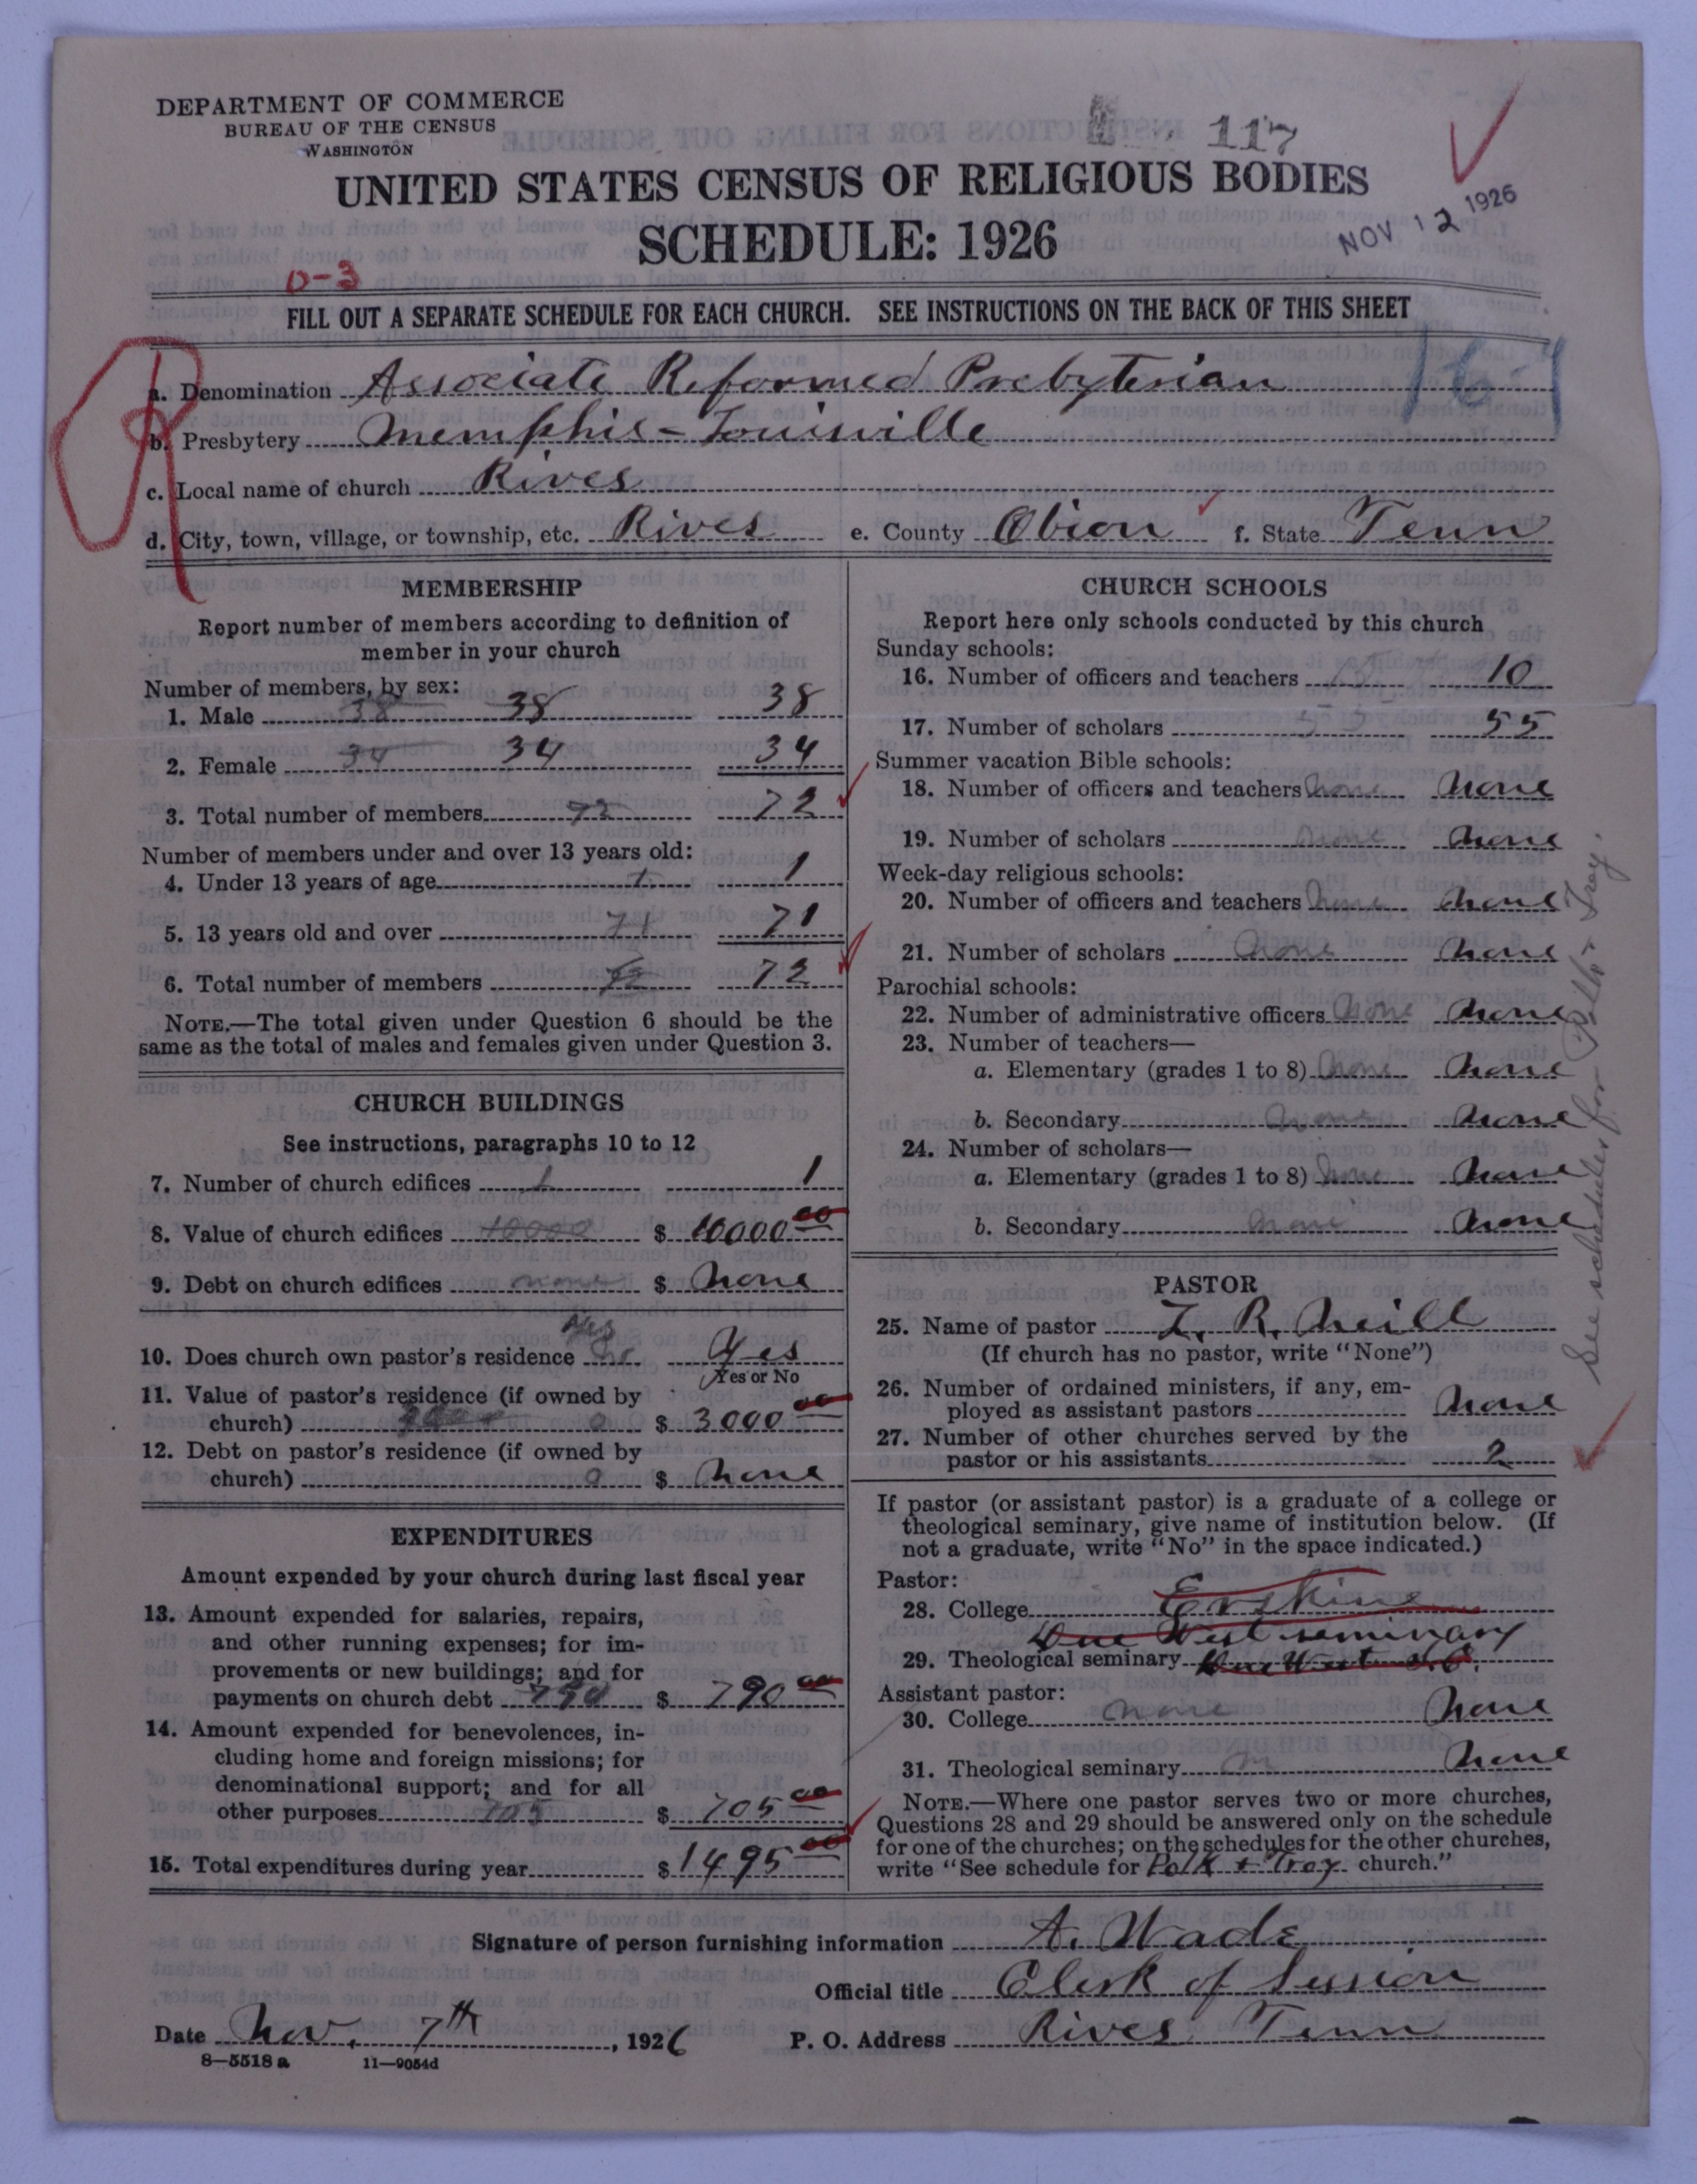 DEPARTMENT OF COMMERCE
BUREAU OF THE CENSUS
WASHINGTON
117
UNITED STATES CENSUS OF RELIGIOUS BODIES
SCHEDULE: 1926
NOV 12 1926
0-3
FILL OUT A SEPARATE SCHEDULE FOR EACH CHURCH. SEE INSTRUCTIONS ON THE BACK OF THIS SHEET
a. Denomination Associate Reformed Presbyterian
b. Presbytery Memphis-Louisville
c. Local name of church Rives
d. City, town, village, or township, etc. Rives e. County Obion f. State Tenn
MEMBERSHIP
Report number of members according to definition of
member in your church
Number of members, by sex:
1. Male 38 38 38
2. Female 34 34 34
3. Total number of members 72 72
Number of members under and over 13 years old:
4. Under 13 years of age 1 1
5. 13 years old and over 71 71
6. Total number of members 72 72
NOTE.—The total given under Question 6 should be the
same as the total of males and females given under Question 3.
CHURCH BUILDINGS
See instructions, paragraphs 10 to 12
7. Number of church edifices 1 1
8. Value of church edifices 10000 $ 10000 00
9. Debt on church edifices none $ None
10. Does church own pastor's residence Yes Yes
Yes or No
11. Value of pastor's residence (if owned by
church) 3000 0 $ 3000 00
12. Debt on pastor's residence (if owned by
church) 0 $ None
EXPENDITURES
Amount expended by your church during last fiscal year
13. Amount expended for salaries, repairs,
and other running expenses; for im-
provements or new buildings; and for
payments on church debt 790 $ 790 00
14. Amount expended for benevolences, in-
cluding home and foreign missions; for
denominational support; and for all
other purposes 705 $ 705 00
15. Total expenditures during year $ 1495 00
CHURCH SCHOOLS
Report here only schools conducted by this church
Sunday schools:
16. Number of officers and teachers 10 10
17. Number of scholars 55 55
Summer vacation Bible schools:
18. Number of officers and teachers none None
19. Number of scholars none None
Week-day religious schools:
20. Number of officers and teachers none None
21. Number of scholars none None
Parochial schools:
22. Number of administrative officers none None
23. Number of teachers—
a. Elementary (grades 1 to 8) none None
b. Secondary none None
24. Number of scholars—
a. Elementary (grades 1 to 8) none None
b. Secondary none None
See schedules for Polk & Troy.
PASTOR
25. Name of pastor T. R. Neill
(If church has no pastor, write "None")
26. Number of ordained ministers, if any, em-
ployed as assistant pastors None
27. Number of other churches served by the
pastor or his assistants 2
If pastor (or assistant pastor) is a graduate of a college or
theological seminary, give name of institution below. (If
not a graduate, write "No" in the space indicated.)
Pastor:
28. College Erskine
Due West seminary
29. Theological seminary Due West S.C.
Assistant pastor:
30. College none None
31. Theological seminary None
NOTE.—Where one pastor serves two or more churches,
Questions 28 and 29 should be answered only on the schedule
for one of the churches; on the schedules for the other churches,
write "See schedule for Polk + Troy church."
Signature of person furnishing information A. Wade
Official title Clerk of Session
Date Nov. 7th, 1926 P. O. Address Rives Tenn
8—5518a 11—9054d